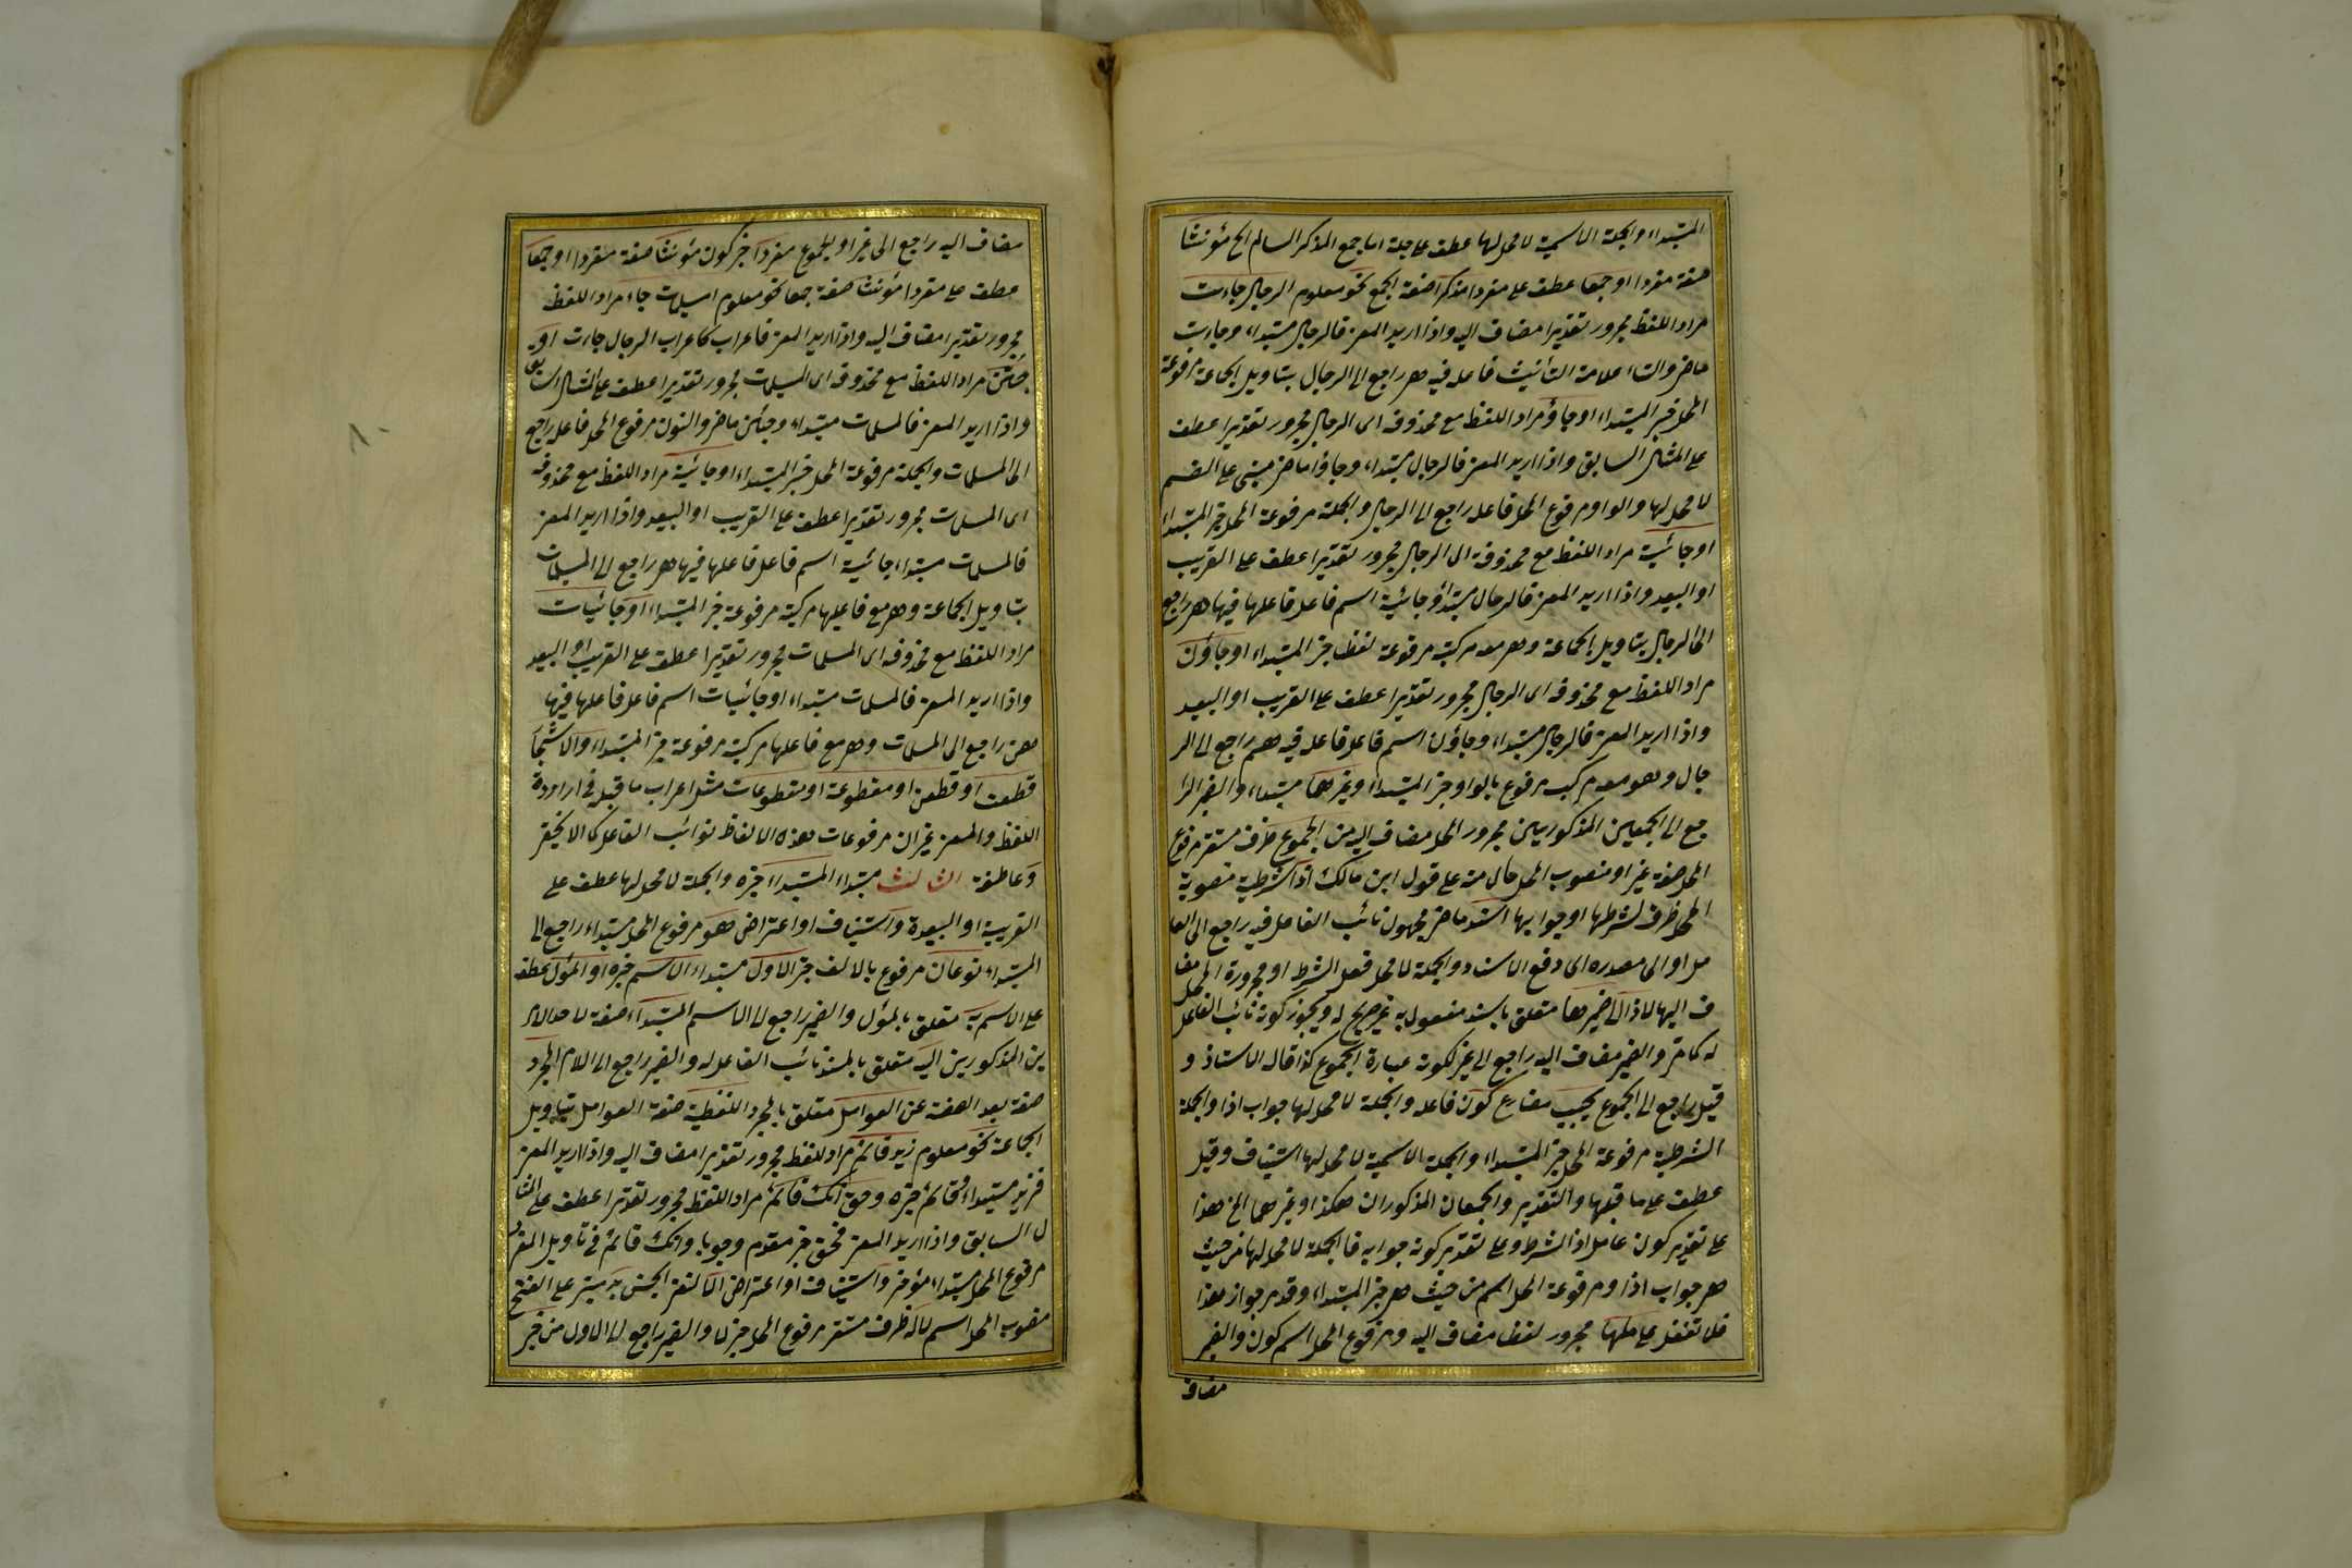 المبتداء والجملة الاسمية لا محل لها عطف على جملة اما جمع المذكر السالم الخ مؤنثا
صفة مفردا او جمعا عطف على مفردا مذكرا صفة الجمع نحو معلوم الرجال جاءت
مراد اللفظ مجرور تقديرا مضاف اليه واذا اريد المعنى فالرجال مبتداء وجاءت
ماض والتاء علامة التأنيث فاعله فيه هى راجع الى الرجال بتاويل الجماعة مرفوعة
المحل خبر المبتداء او جاؤ مراد اللفظ مع محذوفه اى الرجال مجرور تقديرا عطف
على المثال السابق واذا اريد المعنى فالرجال مبتداء وجاؤا ماض مبنى على الضم
لا محل لها والواو مرفوع المحل فاعله راجع الى الرجال والجملة مرفوعة المحل خبر المبتداء
او جائية مراد اللفظ مع محذوفه اى الرجال مجرور تقديرا عطف على القريب
او البعيد واذا اريد المعنى فالرجال مبتدأ وجائية اسم فاعل فاعلها فيها هى راجع
الى الرجال بتاويل الجماعة وهى معه مركبة مرفوعة لفظا خبر المبتداء او جاؤن
مراد اللفظ مع محذوفه اى الرجال مجرور تقديرا عطف على القريب او البعيد
واذا اريد المعنى فالرجال مبتداء وجاؤن اسم فاعل فاعله فيه هم راجع الى الر
جال وهو معه مركب مرفوع بالواو خبر المبتداء وغيرهما مبتداء والضمير الرا
جع الى الجمعين المذكوريين مجرور المحل مضاف اليه من الجموع ظرف مستقر مرفوع
المحل صفة غير او منصوب المحل حال منه على قول ابن مالك اذا شرطية منصوبة
المحل ظرف لشرطها او جوابها اسند ماض مجهول نائب الفاعل فيه راجع الى الفا
عل او الى مصدره اى دفع الاسناد والجملة لا محل فعل الشرط او مجرورة المحل مضا
ف اليها لاذا الى ضميرها متعلق باسند مفعول به غير صريح له ويجوز كونه نائب الفاعل
له كما مر والضمير مضاف اليه راجع الى غير لكونه عبارة الجموع كذا قاله الاستاذ و
قيل راجع الى الجموع يجب مضارع كون فاعله والجملة لا محل لها جواب اذا والجملة
الشرطية مرفوعة المحل خبر المبتداء والجملة الاسمية لا محل لها استيناف وقيل
عطف على ما قبلها والتقدير والجمعان المذكوران هكذا وغيرهما الخ هذا
على تقدير كون عامل اذا الشرط وعلى تقدير كونه جوابه فالجملة لا محل لها من حيث
هى جواب اذا ومرفوعة المحل اسم من حيث هى خبر المبتداء وقد مر جواز هذا
فلا تغفل عاملها مجرور لفظا مضاف اليه ومرفوع المحل اسم كون والضمير
مضاف
مضاف اليه راجع الى غير او للجموع مفردا خبر كون مؤنثا صفة مفردا او جمعا
عطف على مفردا مؤنثا صفة جمعا نحو معلوم المسلمات جاء مراد اللفظ
مجرور تقديرا مضاف اليه واذا اريد المعنى فاعراب كاعراب الرجال جاءت او
جئن مراد اللفظ مع محذوفه اى المسلمات مجرور تقديرا عطف على المثال السابق
واذا اريد المعنى فالمسلمات مبتداء وجئن ماض والنون مرفوع المحل فاعله راجع
الى المسلمات والجملة مرفوعة المحل خبر المبتداء او جائية مراد اللفظ مع محذوفه
اى المسلمات مجرور تقديرا عطف على القريب او البعيد واذا اريد المعنى
فالمسلمات مبتداء جائية اسم فاعل فاعلها فيها هى راجع الى المسلمات
بتاويل الجماعة وهى مع فاعلها مركبة مرفوعة خبر المبتداء او جائيات
مراد اللفظ مع محذوفه اى المسلمات مجرور تقديرا عطف على القريب او البعيد
واذا اريد المعنى فالمسلمات مبتداء او جائيات اسم فاعل فاعلها فيها
هن راجع الى المسلمات وهى مع فاعلها مركبة مرفوعة خبر المبتداء والاشجار
قطعت او قطعن او مقطوعة او مقطوعات مثل اعراب ما قبله فى ارادة
اللفظ والمعنى غير ان مرفوعات هذه الالفاظ نوائب الفاعل كما لا يخفى
وعاطفة الثالث مبتداء المبتداء خبره والجملة لا محل لها عطف على
القريبة او البعيدة واستيناف او اعتراض هو مرفوع المحل مبتداء راجع الى
المبتداء نوعان مرفوع بالالف خبر الاول مبتداء الاسم خبره او المؤل عطف
على الاسم به متعلق بالمؤل والضمير راجع الى الاسم المبتداء صفة
ين المذكورين اليه متعلق بالمسند نائب الفاعل له والضمير راجع الى اللام المجرد
صفة بعد الصفة عن العوامل متعلق بالمجرد اللفظية صفة العوامل بتاويل
الجماعة نحو معلوم زيد قائم مراد اللفظ مجرور تقديرا مضاف اليه واذا اريد المعنى
فزيد مبتداء وقائم خبره وحق انك قائم مراد اللفظ مجرور تقديرا عطف على المثا
ل السابق واذا اريد المعنى فحق خبر مقدم وجوبا وانك قائم فى تاويل المفرد
مرفوع المحل مبتداء مؤخر واستيناف او اعتراض لا لنفى الجنس مبنى على الفتح
منصوب المحل اسم لا له ظرف مستقر مرفوع المحل خبر لا والضمير راجع الى الاول من خبر